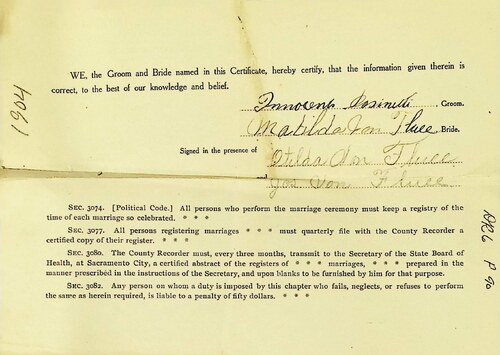 1904
WE, the Groom and Bride named in this Certificate, hereby certify, that the information given therein is
correct, to the best of our knowledge and belief.
Innocente Rosinelli Groom.
Matilda Von Fluee Bride.
Signed in the presence of Otilda Von Fluee
Jos Von Fluee
SEC. 3074. [Political Code.] All persons who perform the marriage ceremony must keep a registry of the
time of each marriage so celebrated. * * *
SEC. 3077. All persons registering marriages * * * must quarterly file with the County Recorder a
certified copy of their register. * * *
SEC. 3080. The County Recorder must, every three months, transmit to the Secretary of the State Board of
Health, at Sacramento City, a certified abstract of the registers of * * * marriages, * * * prepared in the
manner prescribed in the instructions of the Secretary, and upon blanks to be furnished by him for that purpose.
SEC. 3082. Any person on whom a duty is imposed by this chapter who fails, neglects, or refuses to perform
the same as herein required, is liable to a penalty of fifty dollars. * * *
p 90